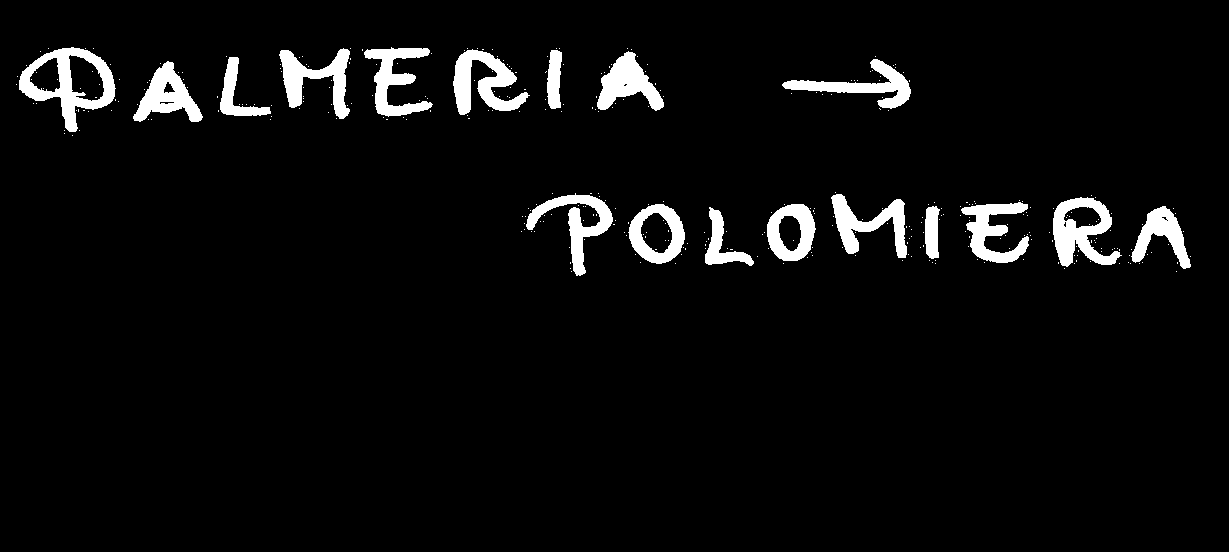 PALMERIA →
POLOMIERA